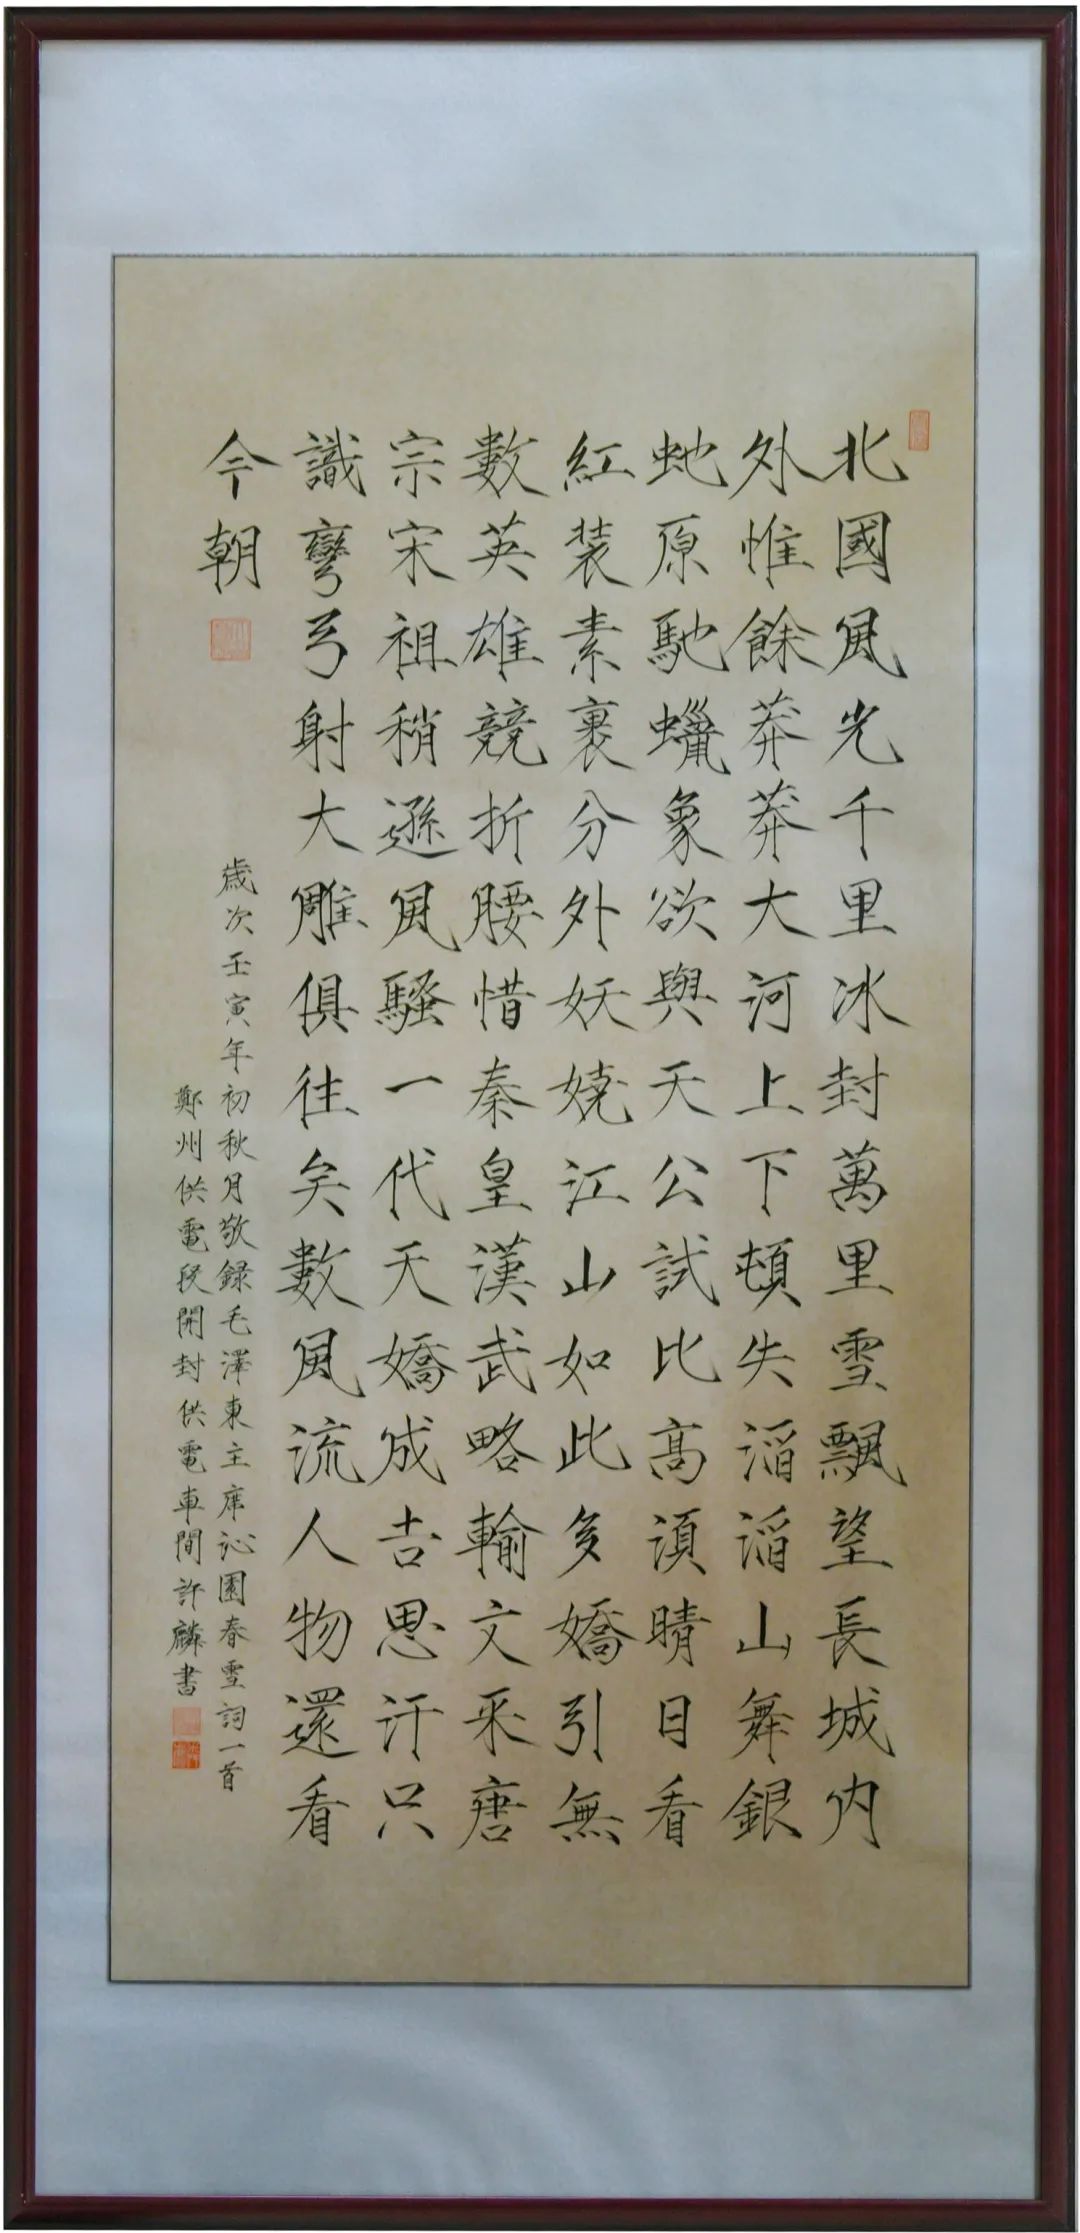 北國風光千里冰封萬里雪飄望長城内
外惟餘莽莽大河上下頓失滔滔山舞銀
虵原馳蠟象欲與天公試比高湏晴日看
紅装素裹分外妖嬈江山如此多嬌引無
數英雄競折腰惜秦皇漢武略輸文采唐
宗宋祖稍遜風騷一代天嬌成吉思汗只
識彎弓射大雕俱往矣數風流人物還看
今朝
歲次壬寅年初秋月敬録毛澤東主席沁園春雪詞一首
鄭州供電段開封供電車間許麟書